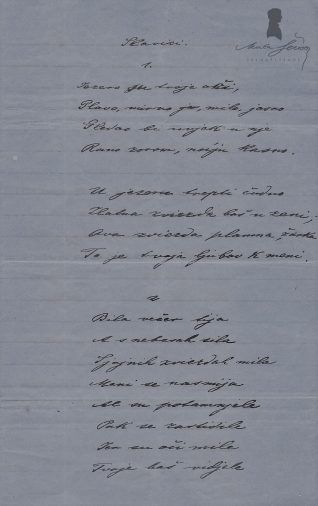 Slavici.
1.
Jezero su tvoje oči,
Plavo, mirno je, mile, jasno
Gledao bi uvjek u nje
Rano zorom, noćju kasno.
U jezeru trepti čudno
Zlatna zviezda baš u zeni,
Ova zviezda plamna, žarka
To je tvoja ljubav k meni.
2
Bila večer tija
A s nebesah sila
Sjajnih zviezdah mila
Meni se nasmija
Al su potamnjele
Pak se zastidile
Jer su oči mile
Tvoje baš vidjele